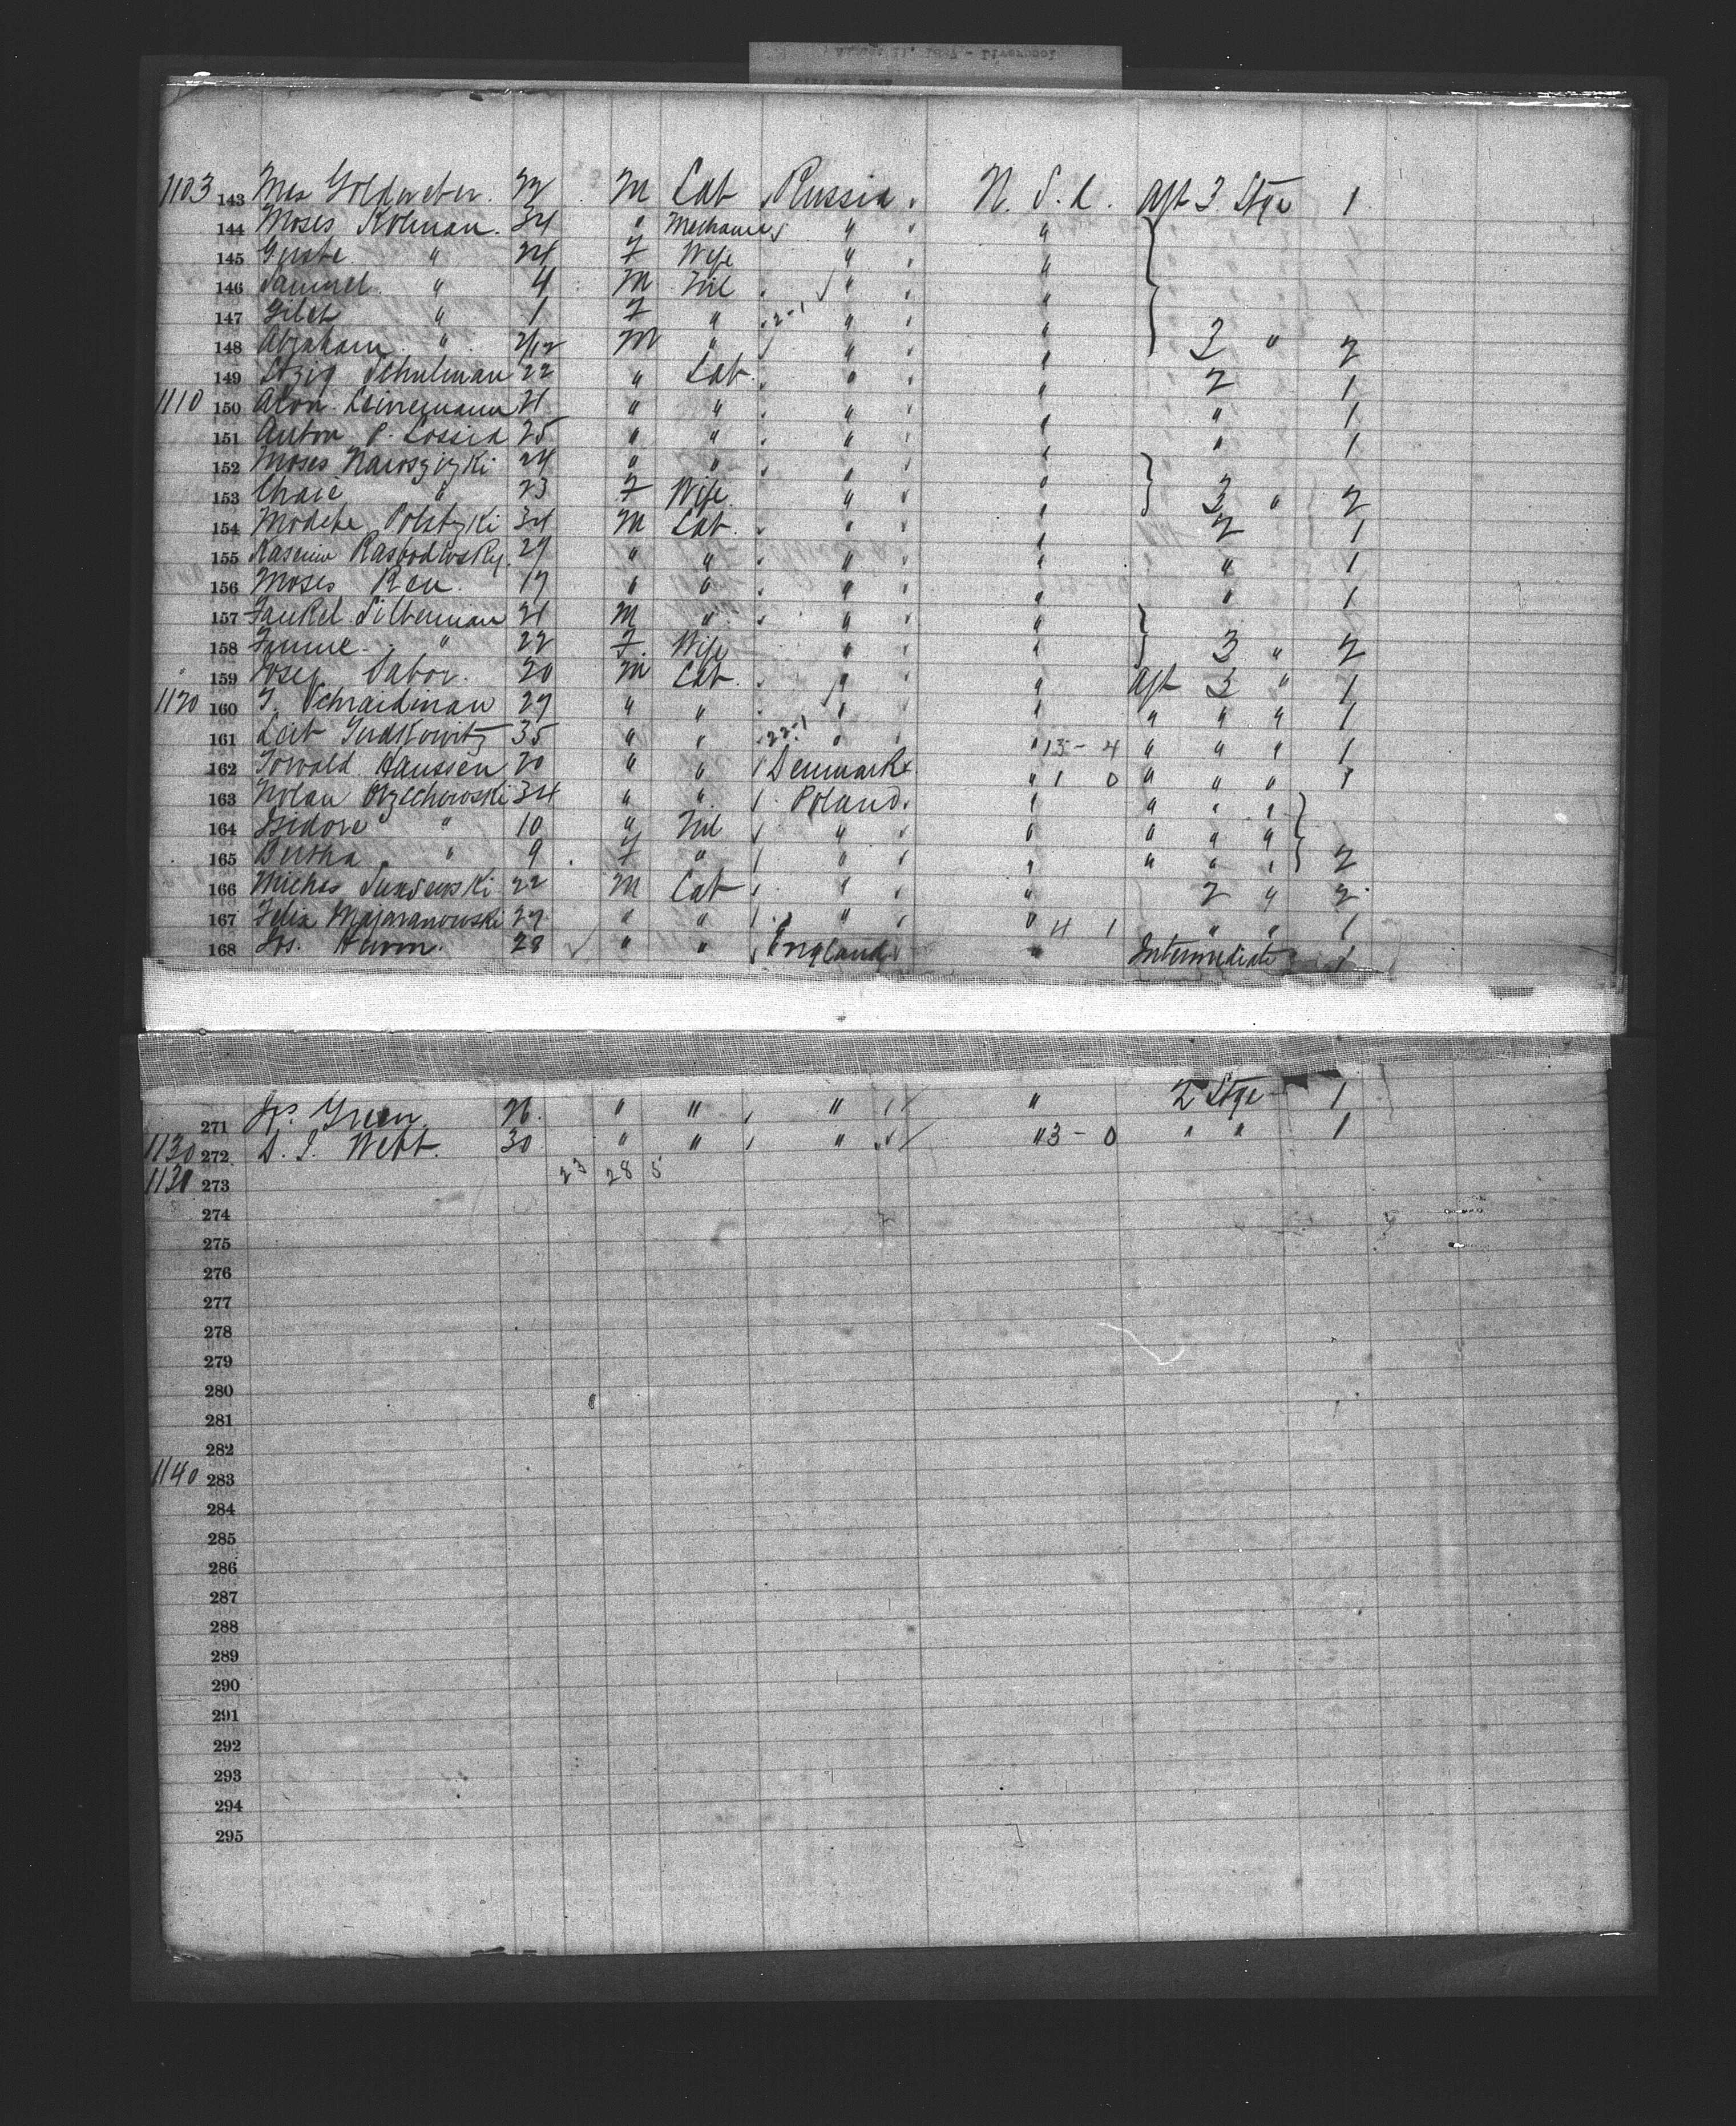 1103 143 Max Goldweber. 22 M Lab Russia. N. S. A. Aft 3 Stge 1
144 Moses Kolman. 34 " Mechanic " "
145 Guste " 24 F Wife " "
146 Samuel " 4 M Nil " "
147 Gilet " 1 F " 2-1 " "
148 Abraham " 2/12 M " " " 3 " 2
149 Itzig Schulman 22 " Lab. " " 2 1
1110 150 Aron 21 " " " " " 1
151 Anton P. Lossia 25 " " " " " 1
152 Moses 24 " " " "
153 Chaie " 23 F Wife " " 3 " 2
154 34 M Lab. " " 2 1
155 29 " " " " " 1
156 Moses 17 " " " " " 1
157 Jankel Silberman 21 M " " "
158 " 22 F Wife " " 3 " 2
159 Josef Sabor. 20 M Lab. " " Aft 3 " 1
1120 160 J. Schraidman 29 " " " " " " " 1
161 Leib Judkowitz 35 " " 22-1 " " 13-4 " " " 1
162 Torvald Hanssen 20 " " Denmark " 1 0 " " " 1
163 Orzechowski 34 " " Poland. " " " "
164 Isidore " 10 " Nil " " " " "
165 Bertha " 9 F " " " " " " 2
166 22 M Lab " " 2 " 2
167 Felix 27 " " " " 4 1 " " 1
168 Jos. 28 " " England " Intermediate 1
271 Jos. Green 26. " " " " 2 Stge 1
1130 272 D. J. Webb. 30 " " " " 3-0 " " 1
1130 273 23 28 5
274
275
276
277
278
279
280
281
282
1140 283
284
285
286
287
288
289
290
291
292
293
294
295